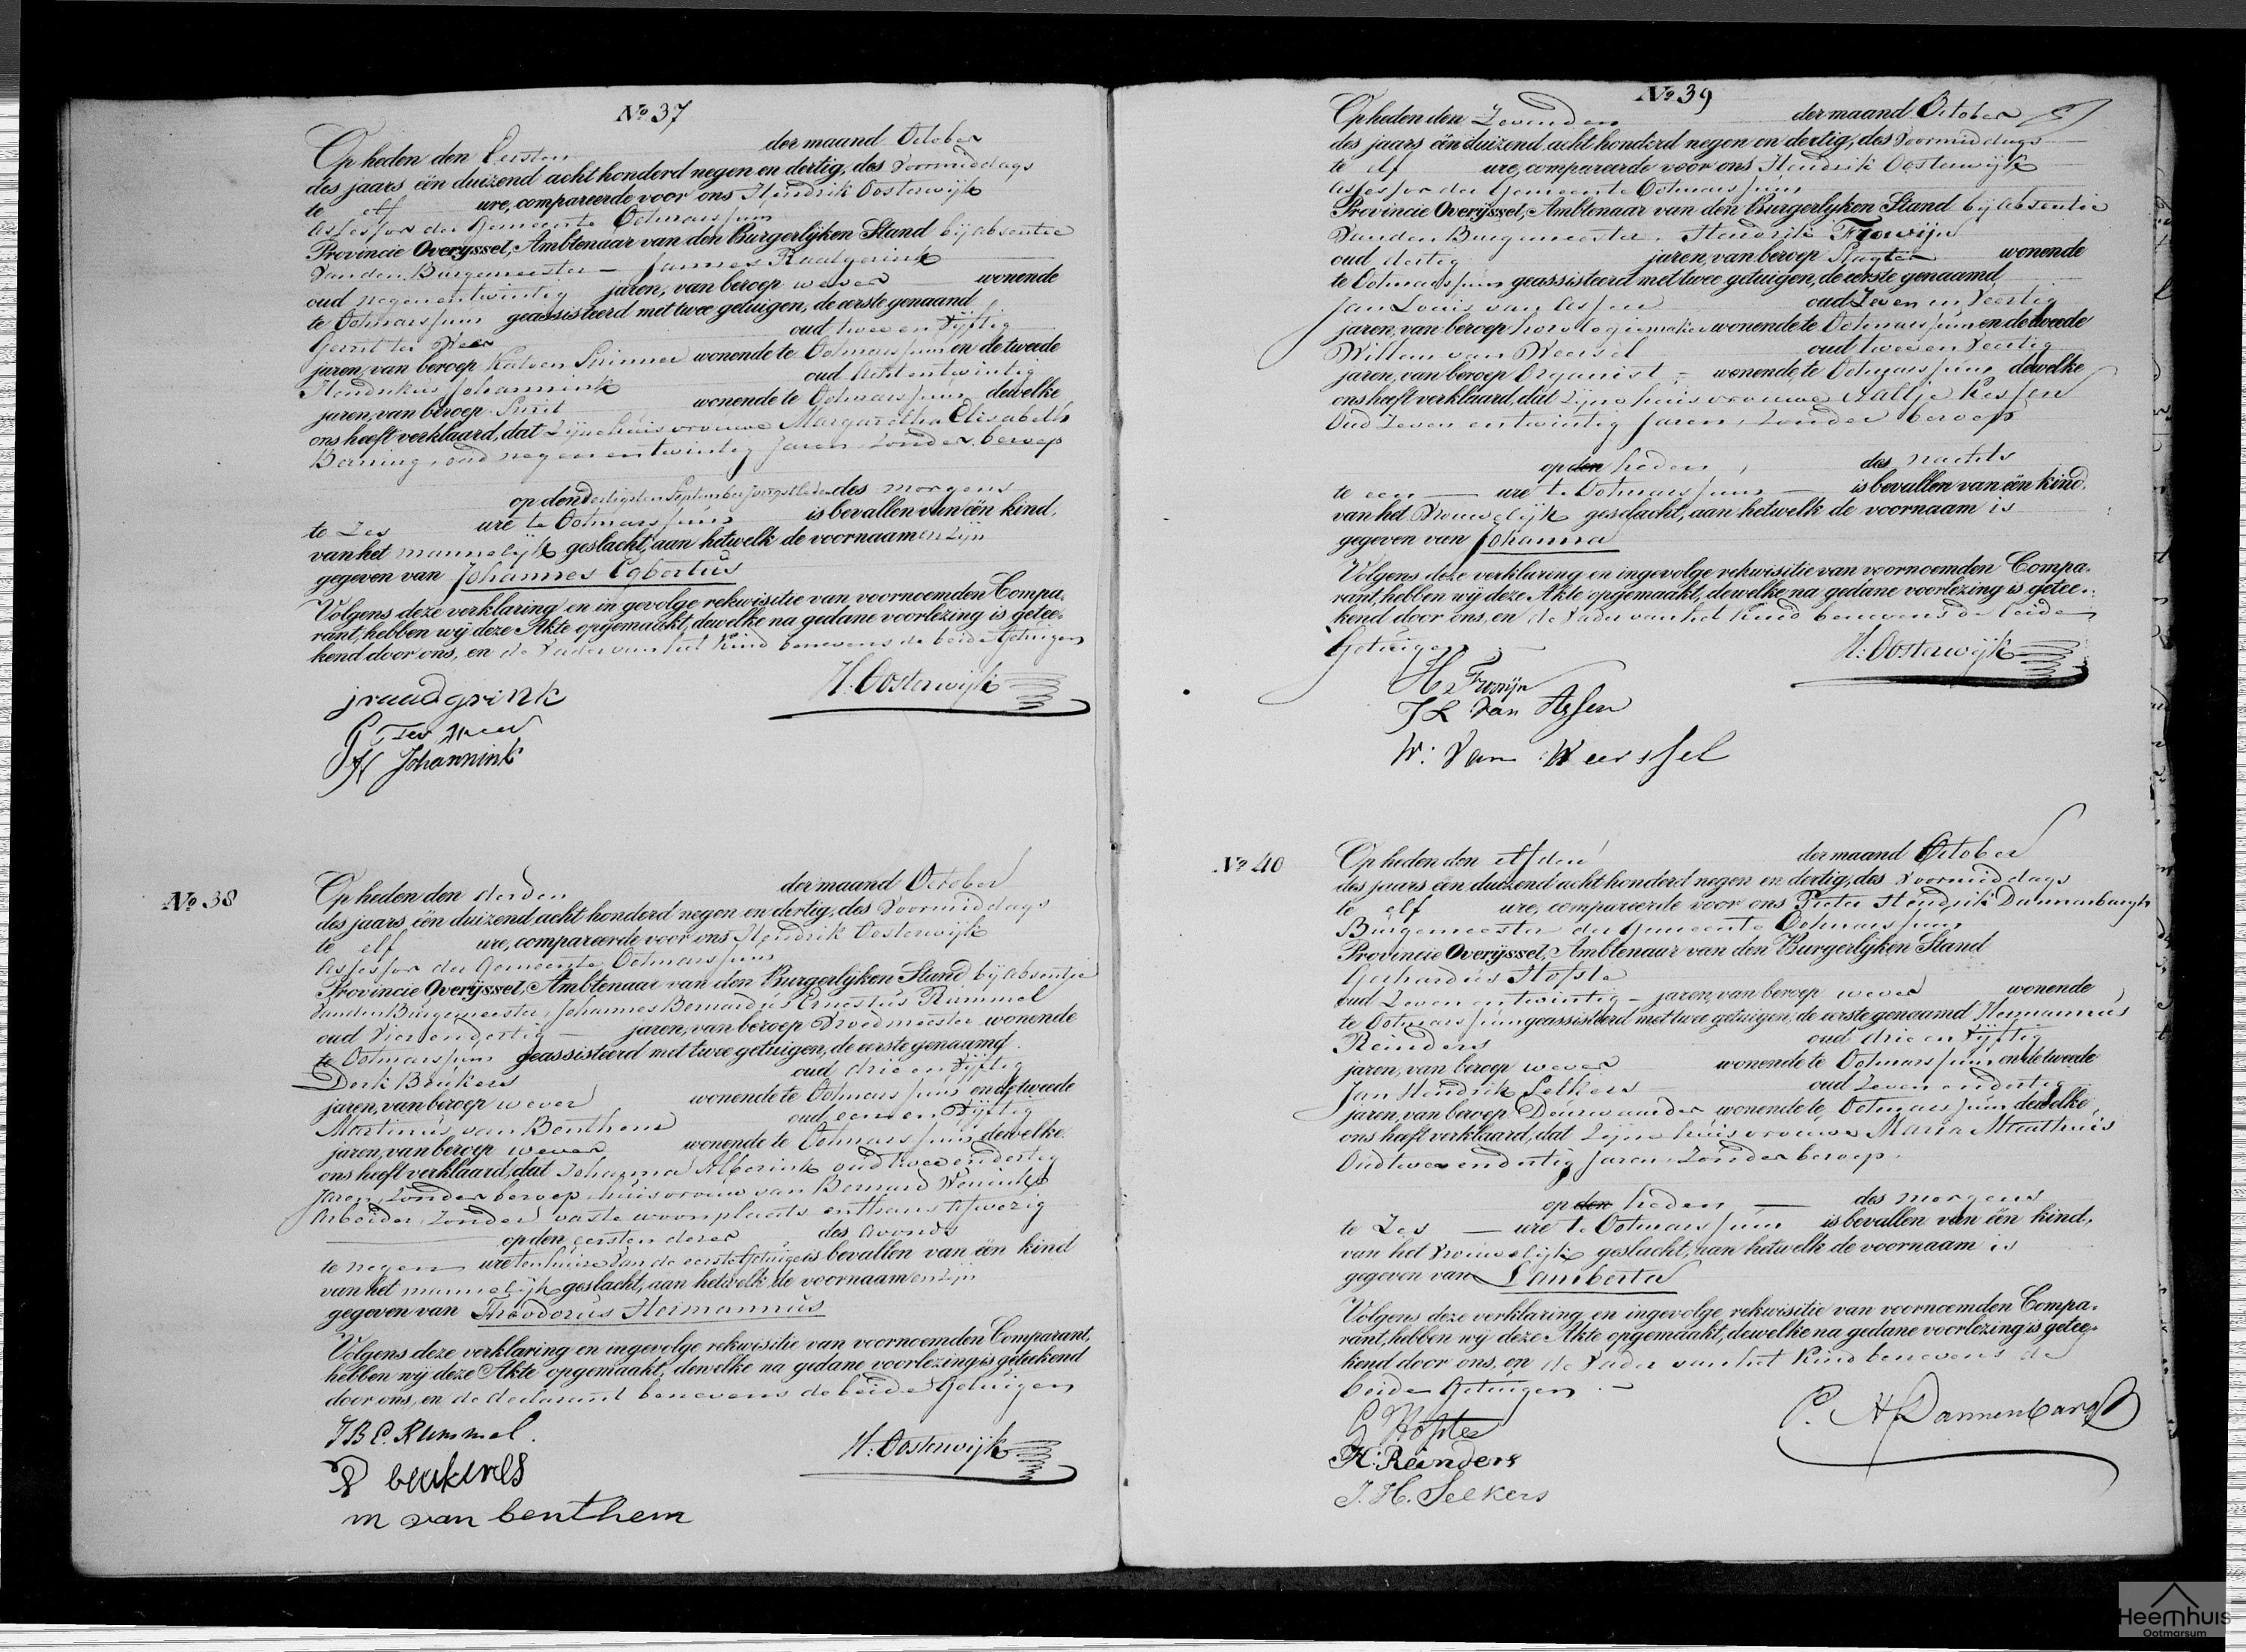 No. 37
Op heden den Eersten der maand October
des jaars één duizend acht honderd negen en dertig, des Voormiddags
te elf ure, compareerde voor ons Hendrik Oosterwijk
Assessor der Gemeente Ootmarssum
Provincie Overijssel, Ambtenaar van den Burgerlijken Stand bij absentie
van den Burgemeester Jannes Raadgerink
oud negenentwintig jaren, van beroep wever wonende
te Ootmarssum geassisteerd met twee getuigen, de eerste genaamd
Gerrit ter oud twee en Vijftig
jaren, van beroep Katoen Spinner wonende te Ootmarssum en de tweede
Hendrikus Johannink oud Achtentwintig
jaren, van beroep Smit wonende te Ootmarssum dewelke
ons heeft verklaard, dat Zijne huisvrouwe Margaretha Elisabeth
oud negenentwintig Jaren Zonder beroep
op den dertigsten September jongstleden des morgens
te Zes ure te Ootmarssum is bevallen van één kind,
van het mannelijk geslacht, aan hetwelk de voornaamen zijn
gegeven van Johannes Egbertus
Volgens deze verklaring en in gevolge rekwisitie van voornoemden Compa-
rant, hebben wij deze Akte opgemaakt, dewelke na gedane voorlezing is getee-
kend door ons, en de Vader van het Kind benevens de beide Getuigen
H. Oosterwijk
j raadgrink
G Ter
H Johannink
No. 38
Op heden den derden der maand October
des jaars één duizend acht honderd negen en dertig, des Voormiddags
te elf ure, compareerde voor ons Hendrik Oosterwijk
Assessor der Gemeente Ootmarssum
Provincie Overijssel, Ambtenaar van den Burgerlijken Stand bij absentie
van den Burgemeester, Johannes Bernardus Ernestus Rummel
oud Vierendertig jaren, van beroep Vroedmeester wonende
te Ootmarssum geassisteerd met twee getuigen, de eerste genaamd
Derk Beukers oud drie en Vijftig
jaren, van beroep wever wonende te Ootmarssum en de tweede
Martinus van Benthem oud een en Vijftig
jaren, van beroep wever wonende te Ootmarssum dewelke
ons heeft verklaard, dat Johanna Alferink oud twee en dertig
Jaren, Zonder beroep huisvrouw van Bernard
Arbeider, Zonder vaste woonplaats, enthans Afwezig
op den eersten dezer des Avonds
te negen ure ten huize van de eerste Getuige is bevallen van één kind
van het mannelijk geslacht, aan hetwelk de voornaamen zijn
gegeven van Theodorus Hermannus
Volgens deze verklaring en ingevolge rekwisitie van voornoemden Comparant,
hebben wij deze Akte opgemaakt, dewelke na gedane voorlezing is geteekend
door ons, en de declarant benevens de beide Getuigen
H. Oosterwijk
J B E. Rummel.
D beukers
m van benthem
No. 39
Op heden den Zevenden der maand October
des jaars één duizend acht honderd negen en dertig, des Voormiddags
te elf ure, compareerde voor ons Hendrik Oosterwijk
Assessor der Gemeente Ootmarssum
Provincie Overijssel, Ambtenaar van den Burgerlijken Stand bij Absentie
van den Burgemeester, Hendrik Frowijn
oud dertig jaren, van beroep Slagter wonende
te Ootmarssum geassisteerd met twee getuigen, de eerste genaamd
Jan Louis van Assen oud Zeven en Veertig
jaren, van beroep horologiemaker wonende te Ootmarssum en de tweede
Willem van Weersel oud twee en Veertig
jaren, van beroep Organist wonende te Ootmarssum dewelke
ons heeft verklaard, dat Zijne huisvrouwe Aaltje
Oud Zeven entwintig Jaren, Zonder beroep
op den heden, des nachts
te een ure te Ootmarssum is bevallen van één kind.
van het Vrouwelijk geslacht, aan hetwelk de voornaam is
gegeven van Johanna
Volgens deze verklaring en ingevolge rekwisitie van voornoemden Compa-
rant, hebben wij deze Akte opgemaakt, dewelke na gedane voorlezing is getee-
kend door ons, en de Vader van het Kind benevens de beide
Getuigen.
H. Oosterwijk
H. Frowijn
J L Van Assen
W: Van Weerssel
No. 40
Op heden den elfden der maand October
des jaars één duizend acht honderd negen en dertig, des Voormiddags
te elf ure, compareerde voor ons Pieter Hendrik Dannenbargh
Burgemeester der Gemeente Ootmarssum
Provincie Overijssel, Ambtenaar van den Burgerlijken Stand
Gerhardus Hofste
oud Zeven entwintig jaren, van beroep wever wonende
te Ootmarssum geassisteerd met twee getuigen, de eerste genaamd Hermannus
Reinders oud drie en Vijftig
jaren, van beroep wever wonende te Ootmarssum en de tweede
Jan Hendrik Selkers oud Zeven en dertig
jaren, van beroep Deurwaarder wonende te Ootmarssum dewelke
ons heeft verklaard, dat Zijne huisvrouwe Maria Maathuis
Oud twee en dertig Jaren, Zonder beroep.
op den heden des morgens
te Zes ure te Ootmarssum is bevallen van één kind,
van het Vrouwelijk geslacht, aan hetwelk de voornaam is
gegeven van Lamberta
Volgens deze verklaring en ingevolge rekwisitie van voornoemden Compa-
rant, hebben wij deze Akte opgemaakt, dewelke na gedane voorlezing is getee-
kend door ons, en de Vader van het Kind benevens de
beide Getuigen.
P. H Dannenbargh
G Hofste
H. Reinders
J. H. Selkers
Heemhuis
Ootmarsum